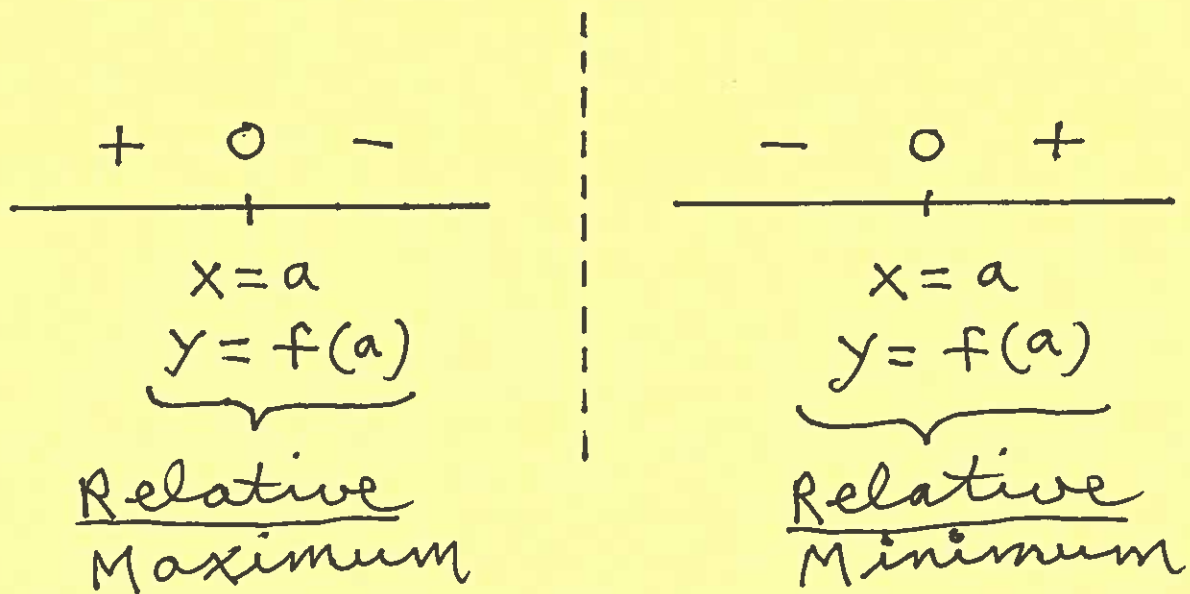 + 0 -
x = a
y = f(a)
Relative
Maximum
- 0 +
x = a
y = f(a)
Relative
Minimum